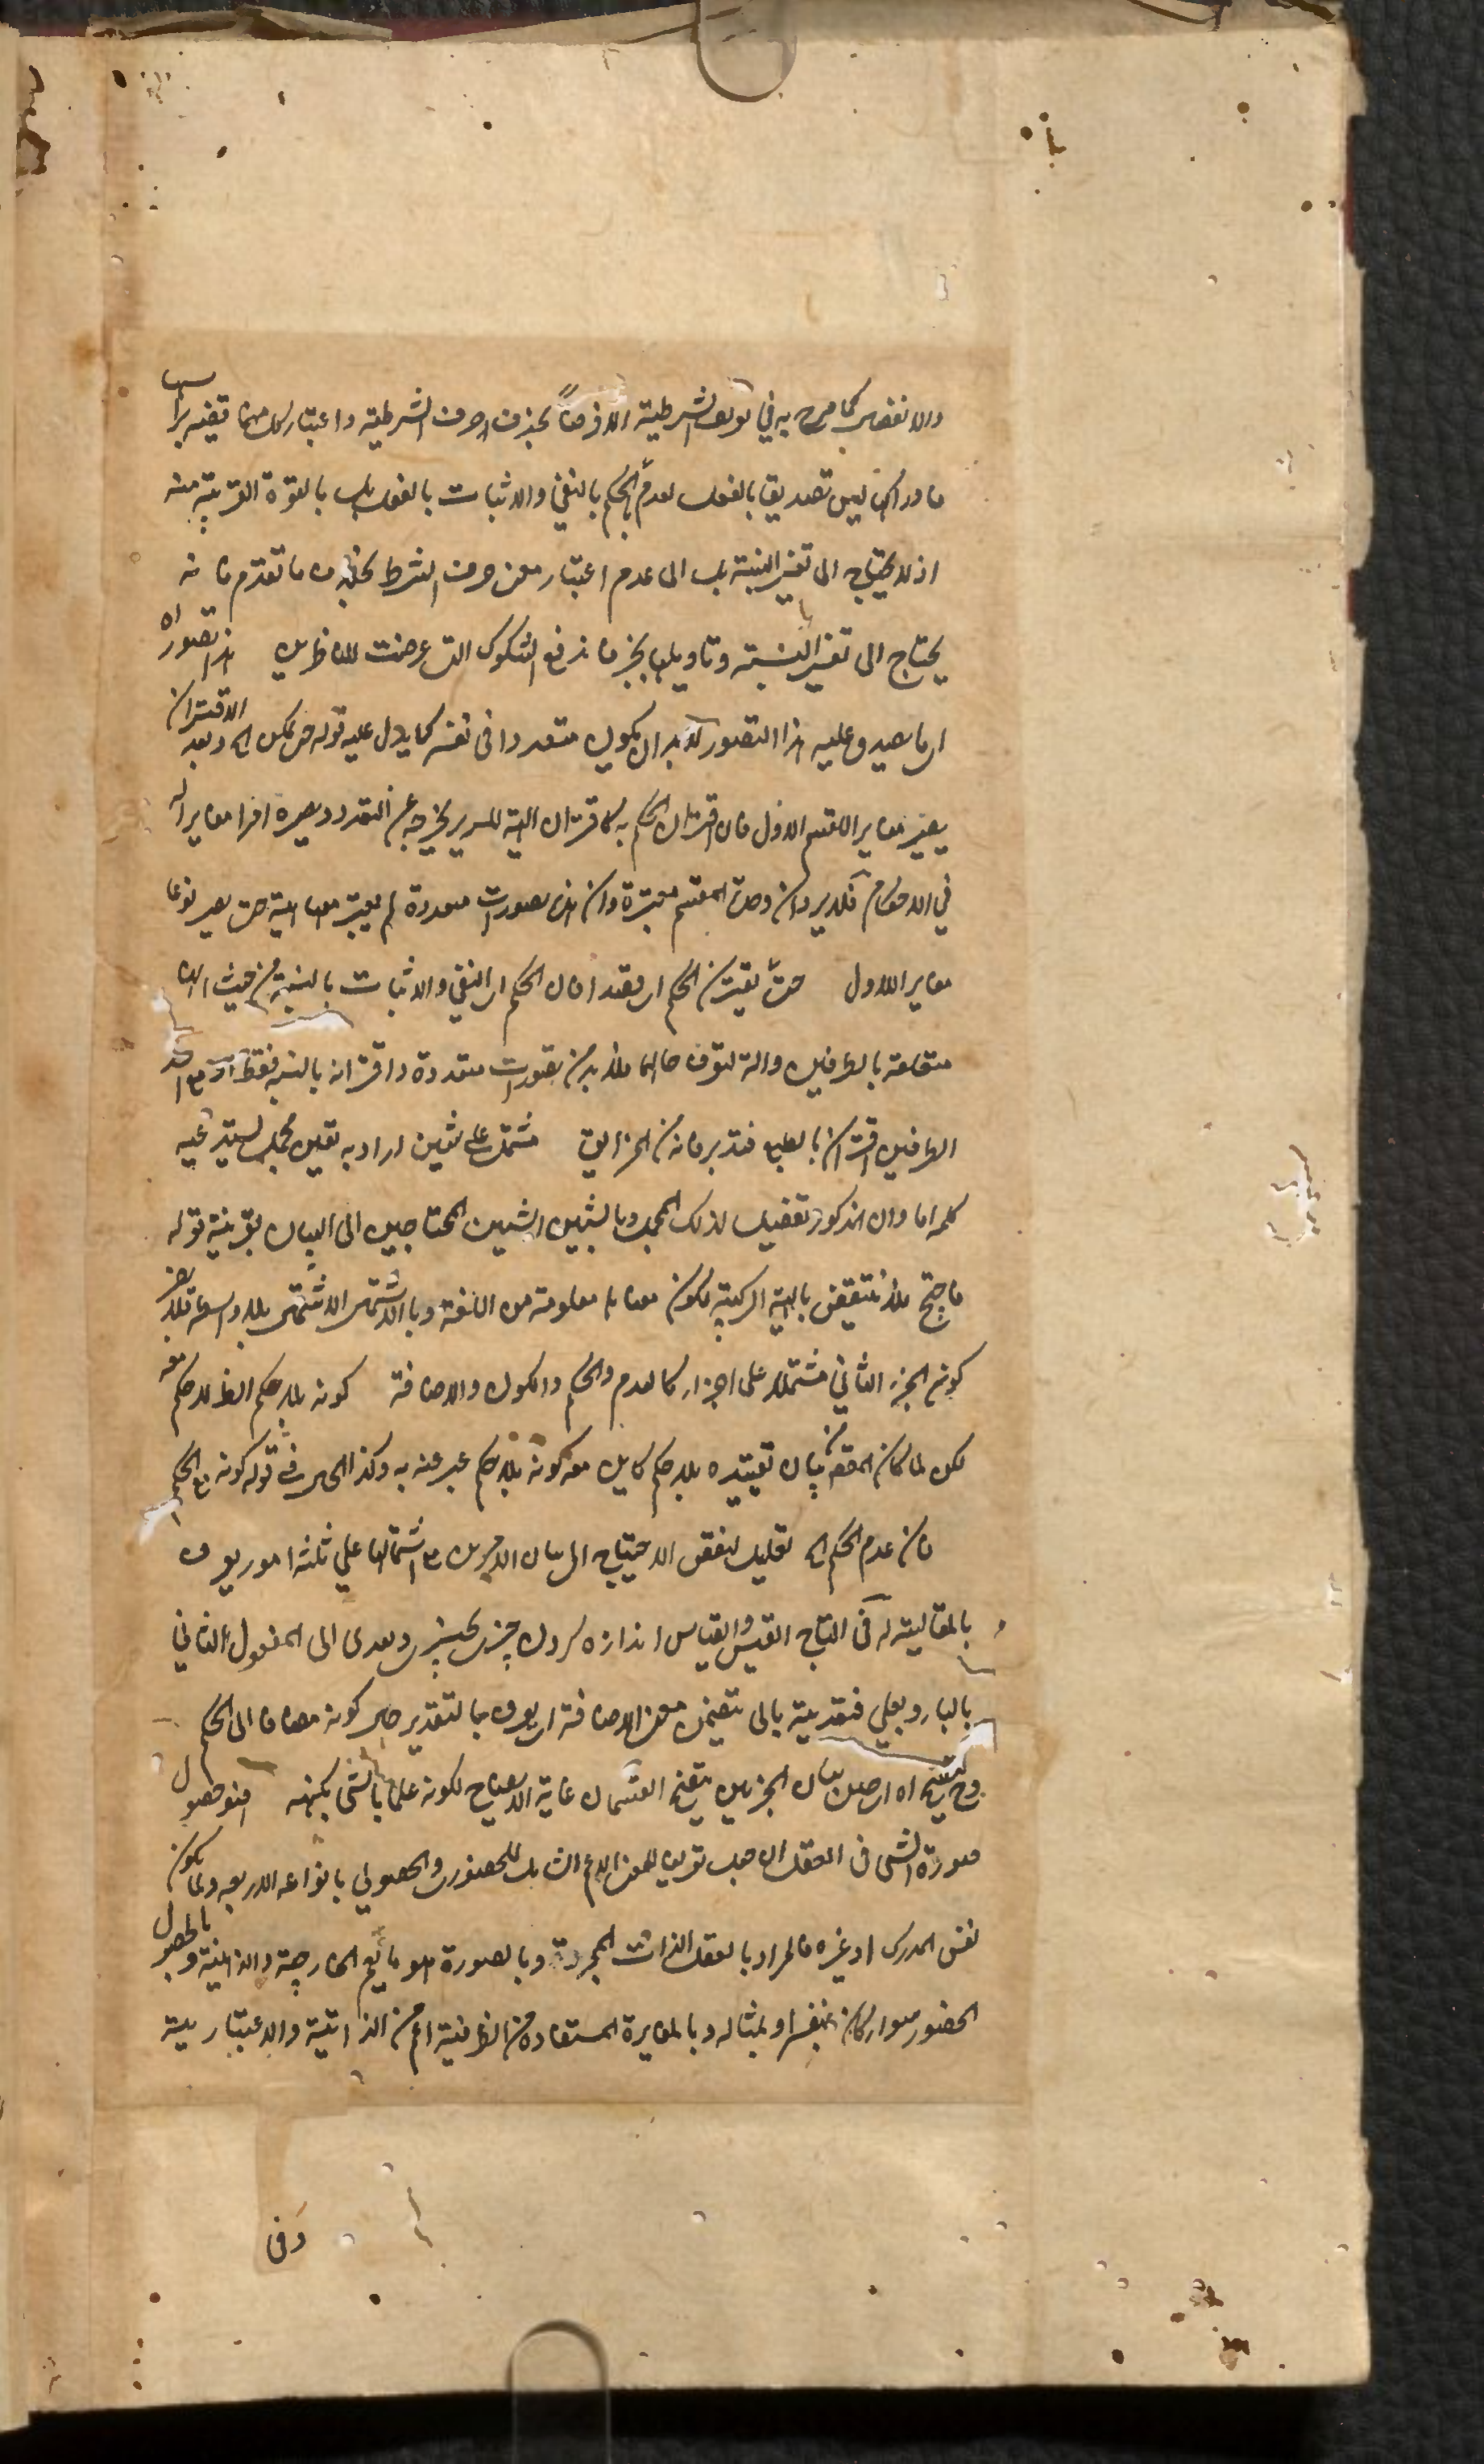 والانفصال كما صرح به في تعريف الشرطية الا فرضاً بحذف احرف الشرطية واعتبار كل منهما قضية براسها
فادراكها ليس تصديقا بالفعل لعدم الحكم بالنفي والاثبات بالفعل بل بالقوة القريبة منه
اذ لا يحتاج الى تغير النسبة بل الى عدم اعتبار معنى حرف الشرط بخلاف ما تقدم فانه
يحتاج الى تغير النسبة وتاويلها بخبر فاندفع الشكوك التي عرضت للناظرين هذا تصوراه
اي ما يصدق عليه هذا التصور لا بد ان يكون متعددا في نفسه كما يدل عليه قوله حتى يمكن الخ وبعد الاقتران
يصير مغايرا للقسم الاول فان اقتران الحكم به كاقتران الهيئة للسرير يخرجه عن التعدد ويصيره امرا مغايرا له
في الاحكام فلا يرد ان وحدة المقسم معتبرة وان هذه تصورات متعددة لم يعتبر معها هيئة حتى يصير نوعا
مغايرا للاول حتى يقترن الحكم اي فقد افان الحكم اي النفي والاثبات بالنسبة من حيث انها
متعلقة بالطرفين والة لتعرف حالهما فلا بد من تصورات متعددة واقترانه بالنسبة فقط او مع احد
الطرفين اقتران بالطبع فتدبر فانه من المزالق مشتمل على شيئين اراد به تعين مجمل يستدعيه
كلمة اما وان المذكور تفصيل لذلك المجمل وبالشيئين الشيئين المحتاجين الى البيان بقرينة قوله
فاحتج فلا ينتقض بالهيئة التركيبية لكون معناها معلومة من اللغة وبالاشتمال الاشتمال بلا واسطة فلا يضر
كون الجزء الثاني مشتملا على اجزاء كالعدم والحكم والكون والاضافة كونه بلا حكم الظ بلا حكم معه
لكن لما كان المقصود بيان تقييده بلا حكم كاين معه كونه بلا حكم عبر عنه به وكذا الحال في قوله كونه مع الحكم
فان عدم الحكم الخ تعليل لنقض الاحتياج الى بيان الامرين مع اشتمالها على ثلثة امور يعرف
بالمقايسة له في التاج القيس والقياس اندازه كردن چيزى بچيزى ويعدى الى المفعول الثاني
بالباء وبعلى فتعديته بالى بتضمن معنى الاضافة اي يعرف بالتقدير حال كونه مضافا الى الحكم
وح يتضح اه اي حين بيان الجزئين يتضح القسمان غاية الايضاح لكونه علما بالشئ بكنهه هو حصول
صورة الشئ في العقل اه جعل تعريفا للمعنى الاعم الشامل للحضوري والحصولي بانواعه الاربعة ولما يكون
نفس المدرك او غيره فالمراد بالعقل الذات المجردة وبالصورة هو ما يعم الخارجية والذهنية وبالحصول
الحضور سواء كان بنفسه او بمثاله وبالمغايرة المستفادة من الظرفية اعم من الذاتية والاعتبارية
وفى